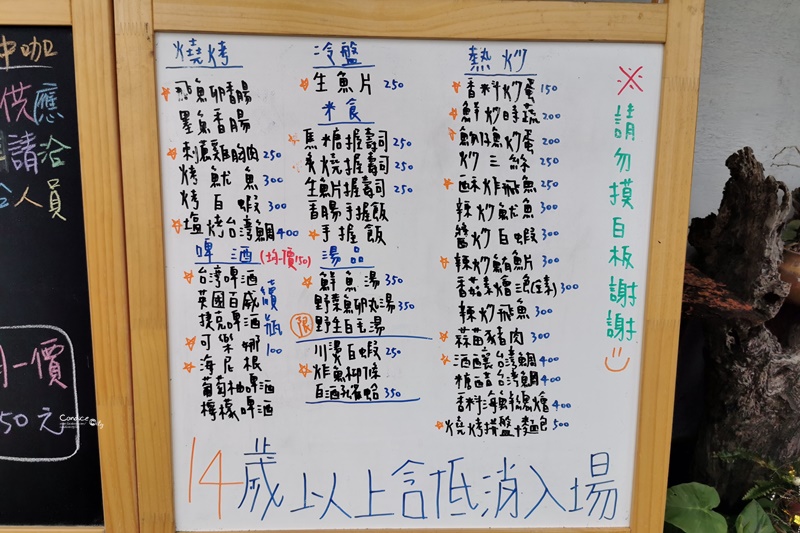 中咖
供應
請洽
人員
一價
50元
燒烤
飛魚卵香腸
墨魚香腸
刺蔥雞胸肉 250
烤魷魚 300
烤白蝦 300
塩烤台灣鯛 400
啤酒(均一價150)
台灣啤酒
英國百威
捷克啤酒
可樂娜
海尼根
葡萄柚啤酒
檸檬啤酒
續瓶100
冷盤
生魚片 250
米食
焦糖握壽司 250
炙燒握壽司 250
生魚片握壽司 250
香腸手握飯
手握飯
湯品
鮮魚湯 350
野菜魚卵丸湯 350
限 野生
川燙白蝦 250
炸魚柳條
白酒 蛤 350
熱炒
香料炒蛋 150
鮮炒時蔬 200
魩仔魚炒蛋 200
炒三絲 250
酥炸飛魚 250
辣炒魷魚 300
醬炒白蝦 300
辣炒鮪魚片 300
香菇素燴 (素) 300
辣炒飛魚 300
蒜苗豬肉 300
酒 台灣鯛 400
糖醋台灣鯛 400
香料海鮮 燴 400
燒烤拼盤+麵包 500
※請勿摸白板謝謝
14歲以上含低消入場